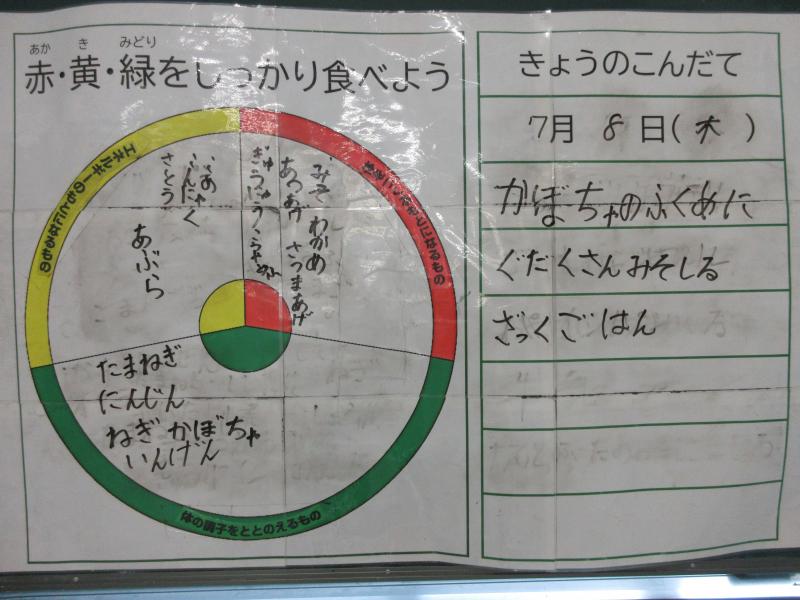 あか き みどり
赤・黄・緑をしっかり食べよう
エネルギーのもとになるもの
こんにゃく
さとう
あぶら
ぎゅうにゅう
みそ わかめ
あつあげ さつまあげ
になるもの
たまねぎ
にんじん
ねぎ かぼちゃ
いんげん
体の調子をととのえるもの
きょうのこんだて
7月 8日(木)
かぼちゃのふくめに
ぐだくさんみそしる
ざっくごはん